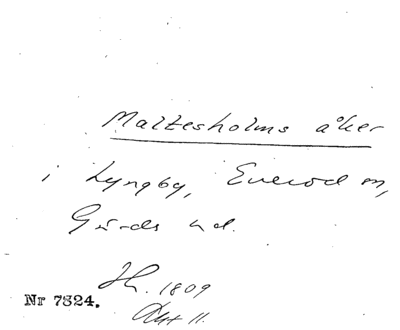 Maltesholms åker
i Lyngby, Everöd sn,
Gärds hd.
Jh. 1809
Akt 11.
Nr 7324.